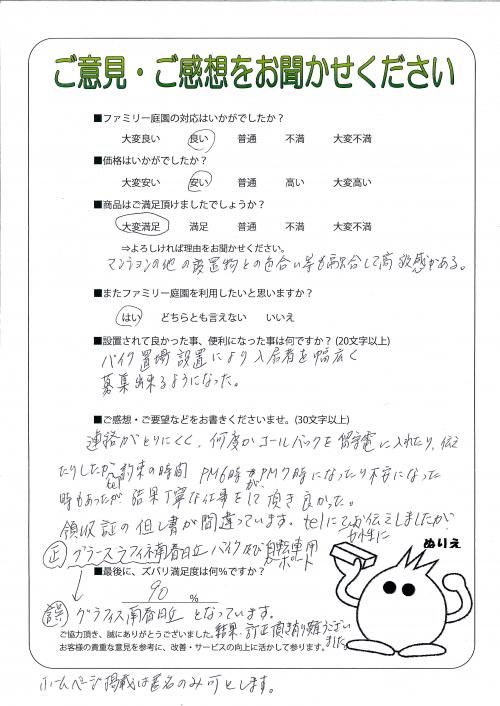 ご意見・ご感想をお聞かせください
■ファミリー庭園の対応はいかがでしたか？
大変良い 良い 普通 不満 大変不満
■価格はいかがでしたか？
大変安い 安い 普通 高い 大変高い
■商品はご満足頂けましたでしょうか？
大変満足 満足 普通 不満 大変不満
⇒よろしければ理由をお聞かせください。
マンションの他の設置物との色合い等も融合して高級感がある。
■またファミリー庭園を利用したいと思いますか？
はい どちらとも言えない いいえ
■設置されて良かった事、便利になった事は何ですか？(20文字以上)
バイク置場設置により入居者を幅広く
募集出来るようになった。
■ご感想・ご要望などをお書きくださいませ。(30文字以上)
連絡がとりにくく、何度かコールバックを留守電に入れたり、伝え
たりしたが tel約束の時間 PM6時がPM7時になったり不安になった
時もあったが、結果丁寧な仕事をして頂き良かった。
領収証の但し書が間違っています。telにてお伝えしましたが
正 グラースラフィネ南春日丘 バイク及び自転車用
カーポート
ぬりえ
■最後に、ズバリ満足度は何%ですか？
90 %
誤 グラフィス南春日丘 となっています。
結果、訂正頂き有難うござい
ました。
ご協力頂き、誠にありがとうございました。
お客様の貴重な意見を参考に、改善・サービスの向上に活かして参ります。
ホームページ掲載は匿名のみ可とします。